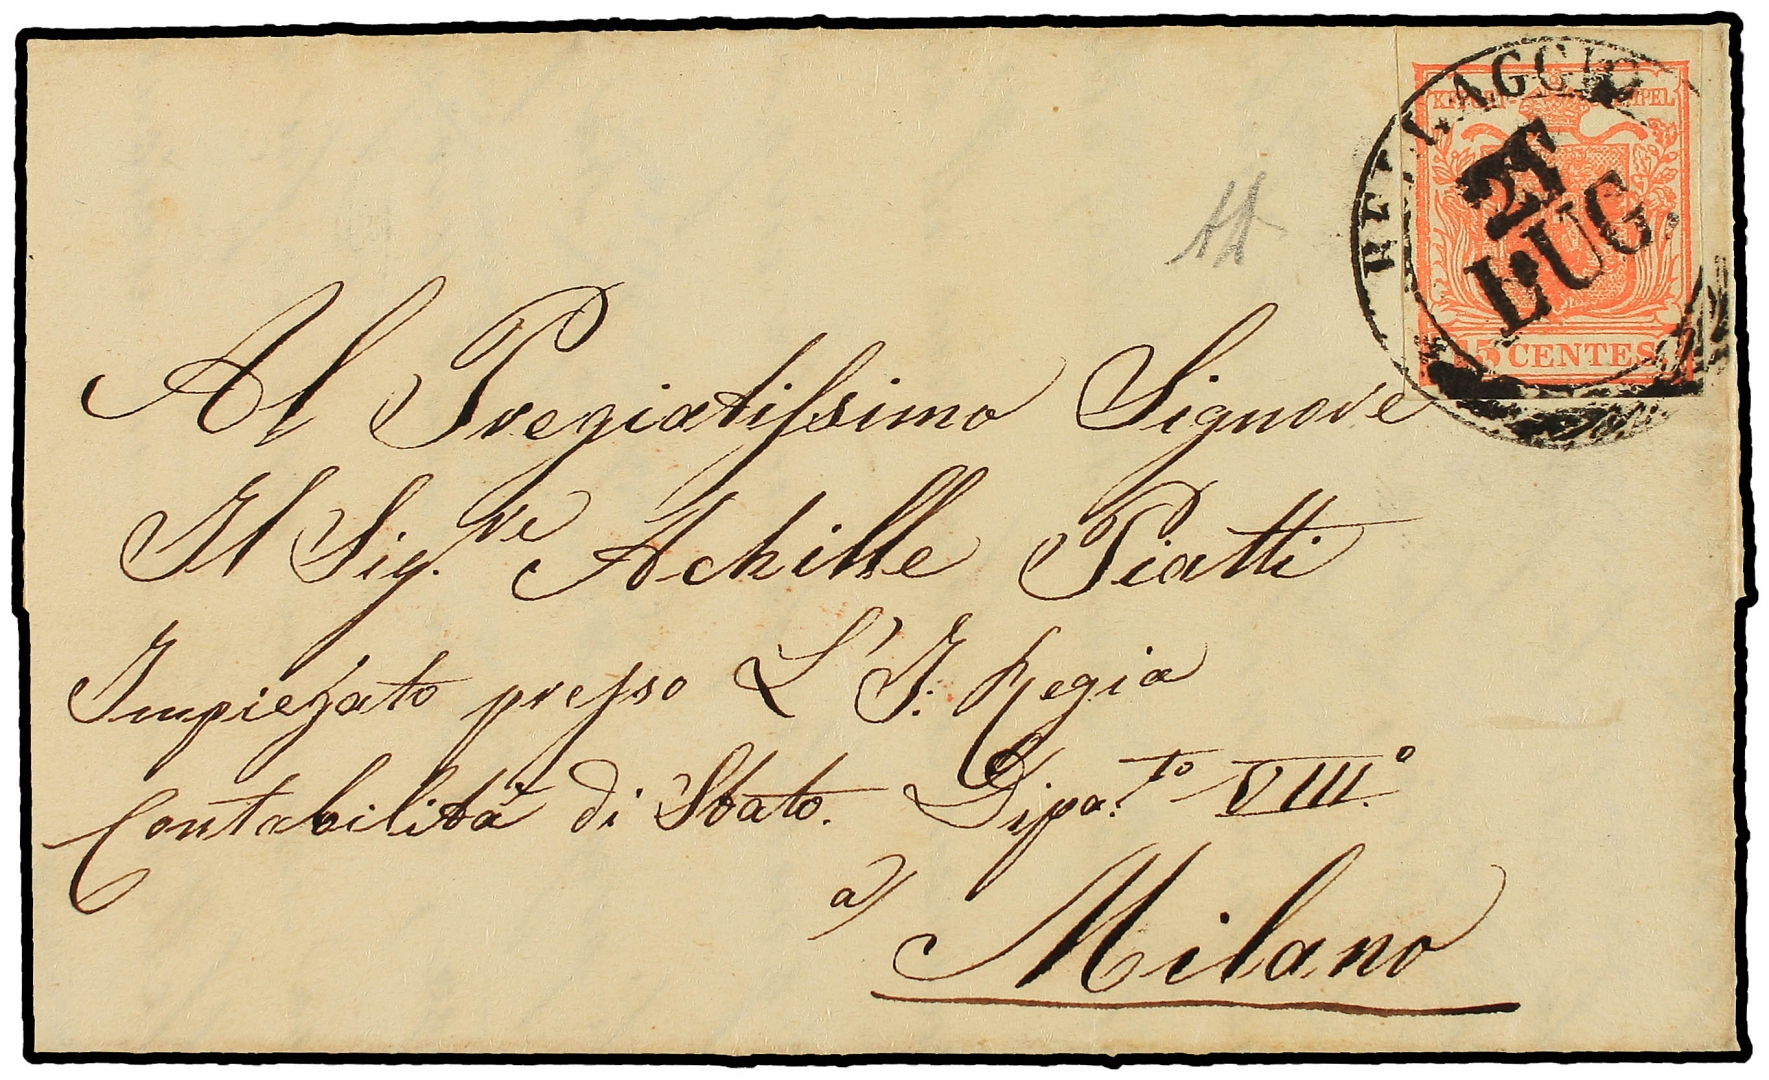 BELLAGGIO
KKPOST-STEMPEL
21
LUG.
15 CENTES.
Al Pregiatissimo Signore
Il Sig.re Achille Piatti
Impiegato presso L'I: Regia
Contabilità di Stato. Dipa.to VIII.°
a)
Milano